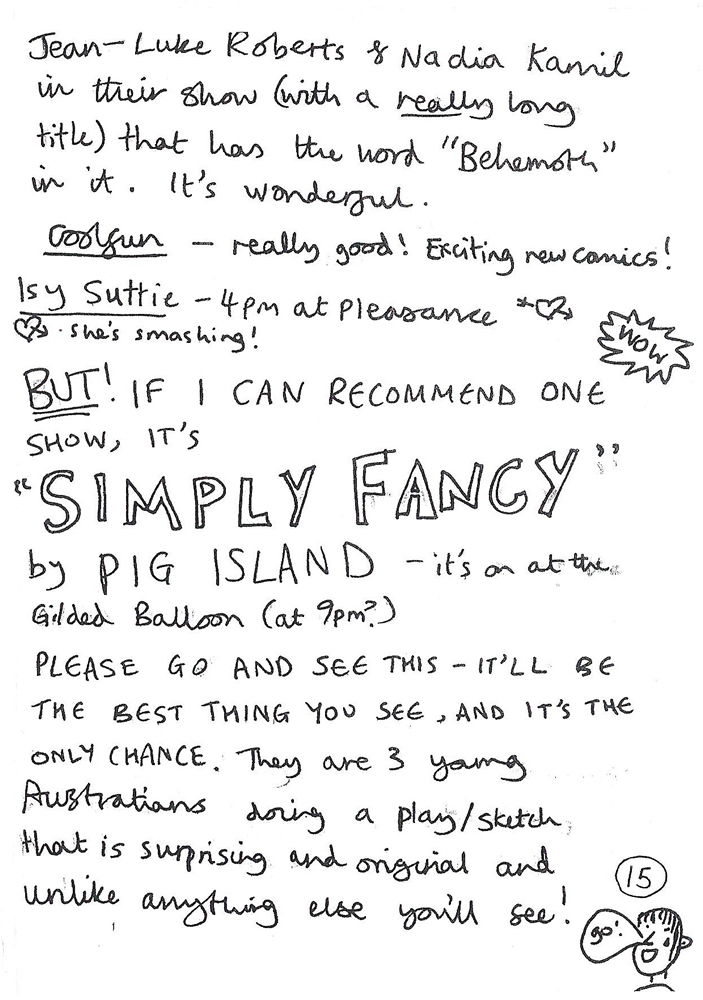 Jean-Luke Roberts & Nadia Kamil
in their show (with a really long
title) that has the word "Behemoth"
in it. It's wonderful.
Coolgun - really good! Exciting new comics!
Isy Suttie - 4pm at Pleasance *
she's smashing!
WOW
BUT! IF I CAN RECOMMEND ONE
SHOW, IT'S
"SIMPLY FANCY"
by PIG ISLAND - it's on at the
Gilded Balloon (at 9pm?)
PLEASE GO AND SEE THIS - IT'LL BE
THE BEST THING YOU SEE, AND IT'S THE
ONLY CHANCE. They are 3 young
Australians doing a play/sketch
that is surprising and original and
unlike anything else you'll see!
15
go!